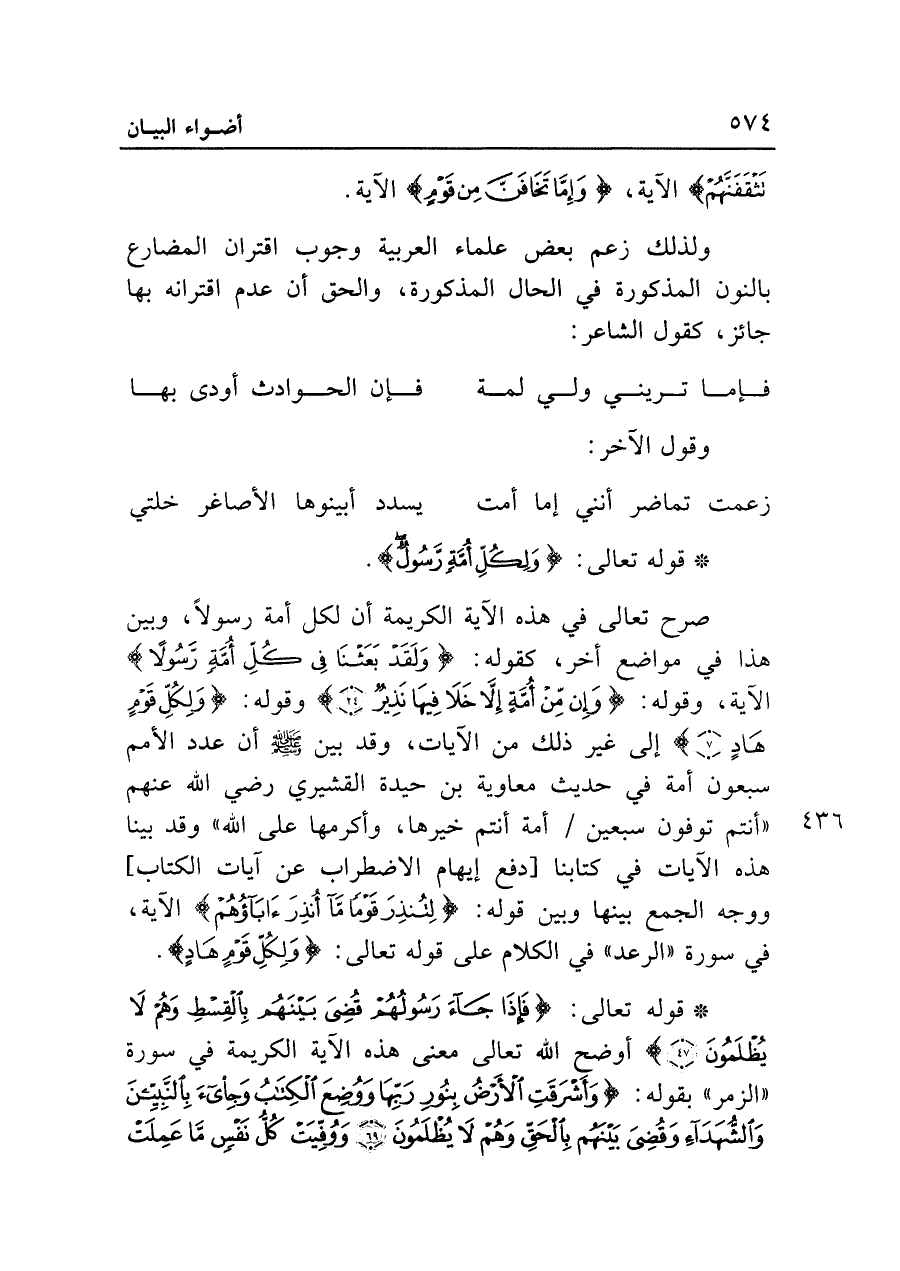 ٥٧٤ أضواء البيان
نَثْقَفَنَّهُمْ﴾ الآية، ﴿وَإِمَّا تَخَافَنَّ مِن قَوْمٍ﴾ الآية.
ولذلك زعم بعض علماء العربية وجوب اقتران المضارع
بالنون المذكورة في الحال المذكورة، والحق أن عدم اقترانه بها
جائز، كقول الشاعر:
فإما تريني ولي لمة فإن الحوادث أودى بها
وقول الآخر:
زعمت تماضر أنني إما أمت يسدد أبينوها الأصاغر خلتي
* قوله تعالى: ﴿وَلِكُلِّ أُمَّةٍ رَّسُولٌۖ﴾.
صرح تعالى في هذه الآية الكريمة أن لكل أمة رسولاً، وبين
هذا في مواضع أخر، كقوله: ﴿وَلَقَدْ بَعَثْنَا فِي كُلِّ أُمَّةٍ رَّسُولًا﴾
الآية، وقوله: ﴿وَإِن مِّنْ أُمَّةٍ إِلَّا خَلَا فِيهَا نَذِيرٌ ٢٤﴾ وقوله: ﴿وَلِكُلِّ قَوْمٍ
هَادٍ ٧﴾ إلى غير ذلك من الآيات، وقد بين ﷺ أن عدد الأمم
سبعون أمة في حديث معاوية بن حيدة القشيري رضي الله عنهم
«أنتم توفون سبعين / أمة أنتم خيرها، وأكرمها على الله» وقد بينا ٤٣٦
هذه الآيات في كتابنا [دفع إيهام الاضطراب عن آيات الكتاب]
ووجه الجمع بينها وبين قوله: ﴿لِتُنذِرَ قَوْمًا مَّآ أُنذِرَ ءَابَآؤُهُمْ﴾ الآية،
في سورة «الرعد» في الكلام على قوله تعالى: ﴿وَلِكُلِّ قَوْمٍ هَادٍ﴾.
* قوله تعالى: ﴿فَإِذَا جَآءَ رَسُولُهُمْ قُضِيَ بَيْنَهُم بِٱلْقِسْطِ وَهُمْ لَا
يُظْلَمُونَ ٤٧﴾ أوضح الله تعالى معنى هذه الآية الكريمة في سورة
«الزمر» بقوله: ﴿وَأَشْرَقَتِ ٱلْأَرْضُ بِنُورِ رَبِّهَا وَوُضِعَ ٱلْكِتَٰبُ وَجِاْيٓءَ بِٱلنَّبِيِّـۧنَ
وَٱلشُّهَدَآءِ وَقُضِيَ بَيْنَهُم بِٱلْحَقِّ وَهُمْ لَا يُظْلَمُونَ ٦٩ وَوُفِّيَتْ كُلُّ نَفْسٍ مَّا عَمِلَتْ